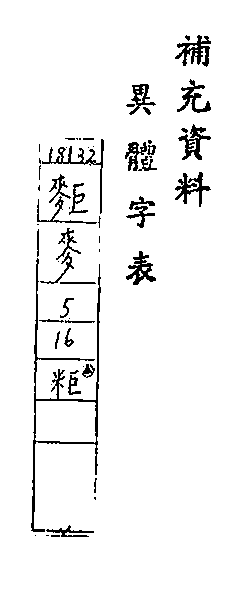 補充資料
異體字表
18132
麥
5
16
粔